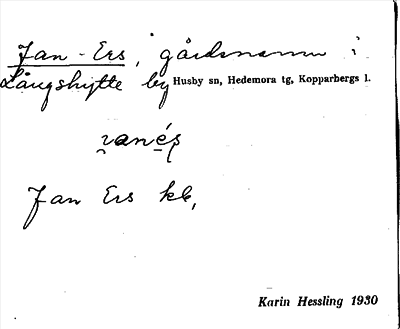 Jan-Ers, gårdsnamn i
Långshytte by Husby sn, Hedemora tg, Kopparbergs l.
Jan Ers kb,
Karin Hessling 1930